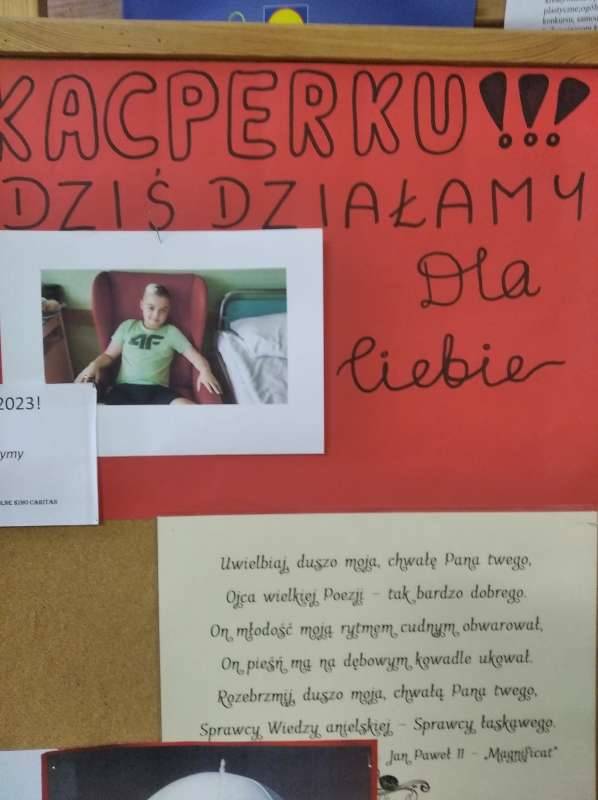 plastyczne, ogóln
konkursu, samod
KACPERKU!!!
DZIŚ DZIAŁAMY
Dla
Ciebie
4F
2023!
ymy
LNE KINO CARITAS
Uwielbiaj, duszo moja, chwałę Pana twego,
Ojca wielkiej Poezji – tak bardzo dobrego.
On młodość moją rytmem cudnym obwarował,
On pieśń mą na dębowym kowadle ukował.
Rozebrzmij, duszo moja, chwałą Pana twego,
Sprawcy Wiedzy anielskiej – Sprawcy łaskawego.
Jan Paweł II – „Magnificat"